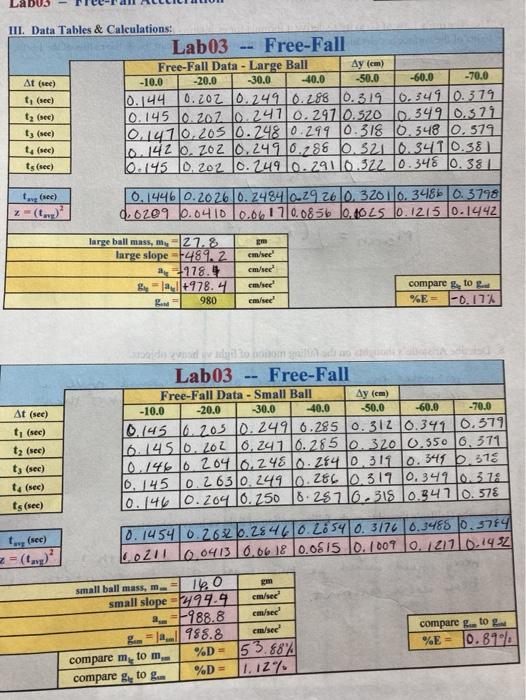 III. Data Tables & Calculations:
Lab03 -- Free-Fall
Free-Fall Data - Large Ball Δy (cm)
Δt (sec) -10.0 -20.0 -30.0 -40.0 -50.0 -60.0 -70.0
t₁ (sec) 0.144 0.202 0.249 0.288 0.319 0.349 0.379
t₂ (sec) 0.145 0.202 0.247 0.297 0.520 0.349 0.379
t₃ (sec) 0.147 0.205 0.248 0.299 0.318 0.348 0.579
t₄ (sec) 0.142 0.202 0.249 0.288 0.321 0.347 0.381
t₅ (sec) 0.145 0.202 0.249 0.291 0.322 0.348 0.381
tavg (sec) 0.1446 0.2026 0.2484 0.2926 0.3201 0.3486 0.3798
z = (tavg)² 0.0209 0.0410 0.0617 0.0856 0.1025 0.1215 0.1442
large ball mass, mlg = 27.8 gm
large slope = -489.2 cm/sec²
alg = -978.4 cm/sec²
glg = |alg| +978.4 cm/sec² compare glg to gstd
gstd = 980 cm/sec² %E = -0.17%
Lab03 -- Free-Fall
Free-Fall Data - Small Ball Δy (cm)
Δt (sec) -10.0 -20.0 -30.0 -40.0 -50.0 -60.0 -70.0
t₁ (sec) 0.145 0.203 0.249 0.285 0.312 0.349 0.379
t₂ (sec) 0.145 0.202 0.247 0.285 0.320 0.350 0.379
t₃ (sec) 0.146 0.204 0.248 0.284 0.319 0.348 0.378
t₄ (sec) 0.145 0.263 0.249 0.286 0.319 0.349 0.378
t₅ (sec) 0.146 0.204 0.250 0.287 0.318 0.347 0.378
tavg (sec) 0.1454 0.2032 0.2846 0.2854 0.3176 0.3488 0.3784
z = (tavg)² 0.0211 0.0413 0.0618 0.0815 0.1009 0.1217 0.1432
small ball mass, msm = 16.0 gm
small slope = -499.4 cm/sec²
asm = -988.8 cm/sec²
gsm = |asm| 988.8 cm/sec² compare gsm to gstd
compare mlg to msm %D = 53.88% %E = 0.89%
compare glg to gsm %D = 1.12%